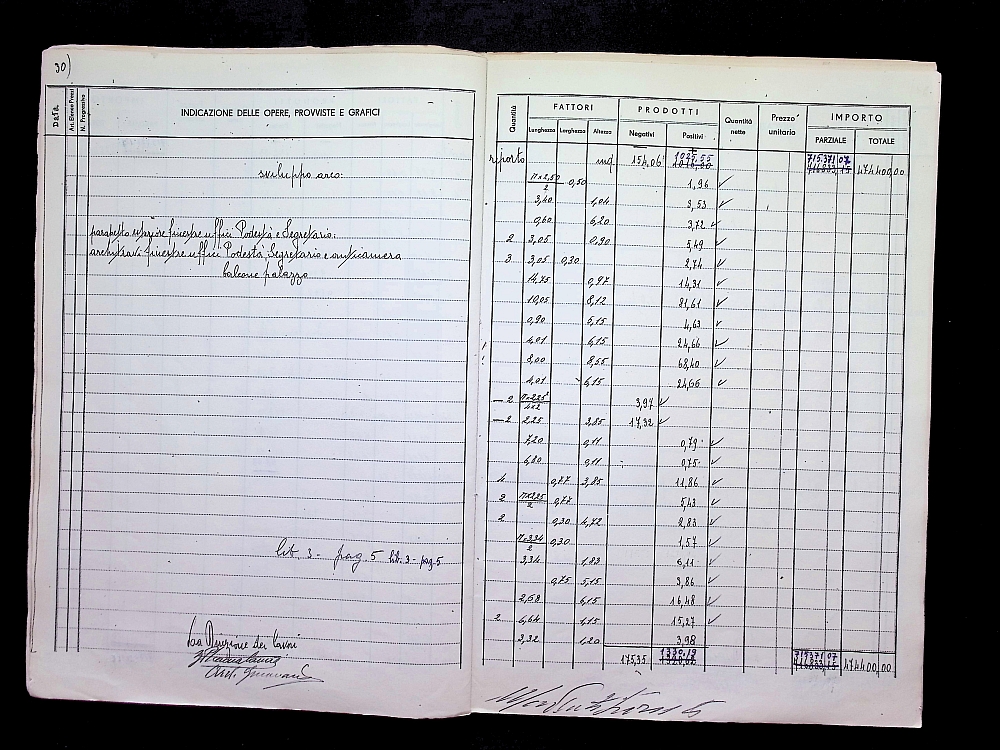 30)
Data
Art. Elenco Prezzi
N. Progressivo
INDICAZIONE DELLE OPERE, PROVVISTE E GRAFICI
sviluppo arco:
parapetto interiore finestre uffici Podestà e Segretario:
architravi finestre uffici Podestà, Segretario e anticamera
balcone palazzo
lib. 3 - pag. 5 lib. 3 - pag. 5
La Direzione dei lavori
Quantità
FATTORI
PRODOTTI
Quantità nette
Prezzo unitario
IMPORTO
Lunghezza Larghezza Altezza
Negativi Positivi
PARZIALE TOTALE
riporto mq 154,06 1025,55 715.371 07 474400,00
π×2,50/2 0,50 1,96
3,40 1,04 3,53
0,60 6,20 3,72
2 3,05 0,90 5,49
3 3,05 0,30 2,74
14,75 0,97 14,31
10,05 8,12 81,61
0,90 5,15 4,63
4,01 6,15 24,66
8,00 8,55 68,40
4,01 6,15 24,66
-2 π×2,25²/4×2 3,97
-2 2,25 3,85 17,32
7,20 0,11 0,79
6,80 0,11 0,75
4 0,77 3,85 11,86
2 π×2,25/2 0,77 5,43
2 0,30 4,72 2,83
π×3,34/2 0,30 1,57
3,34 1,83 6,11
0,75 5,15 3,86
2,68 6,15 16,48
2 6,64 1,15 15,27
3,32 1,20 3,98
175,35 1330.19 715371 07 474400,00